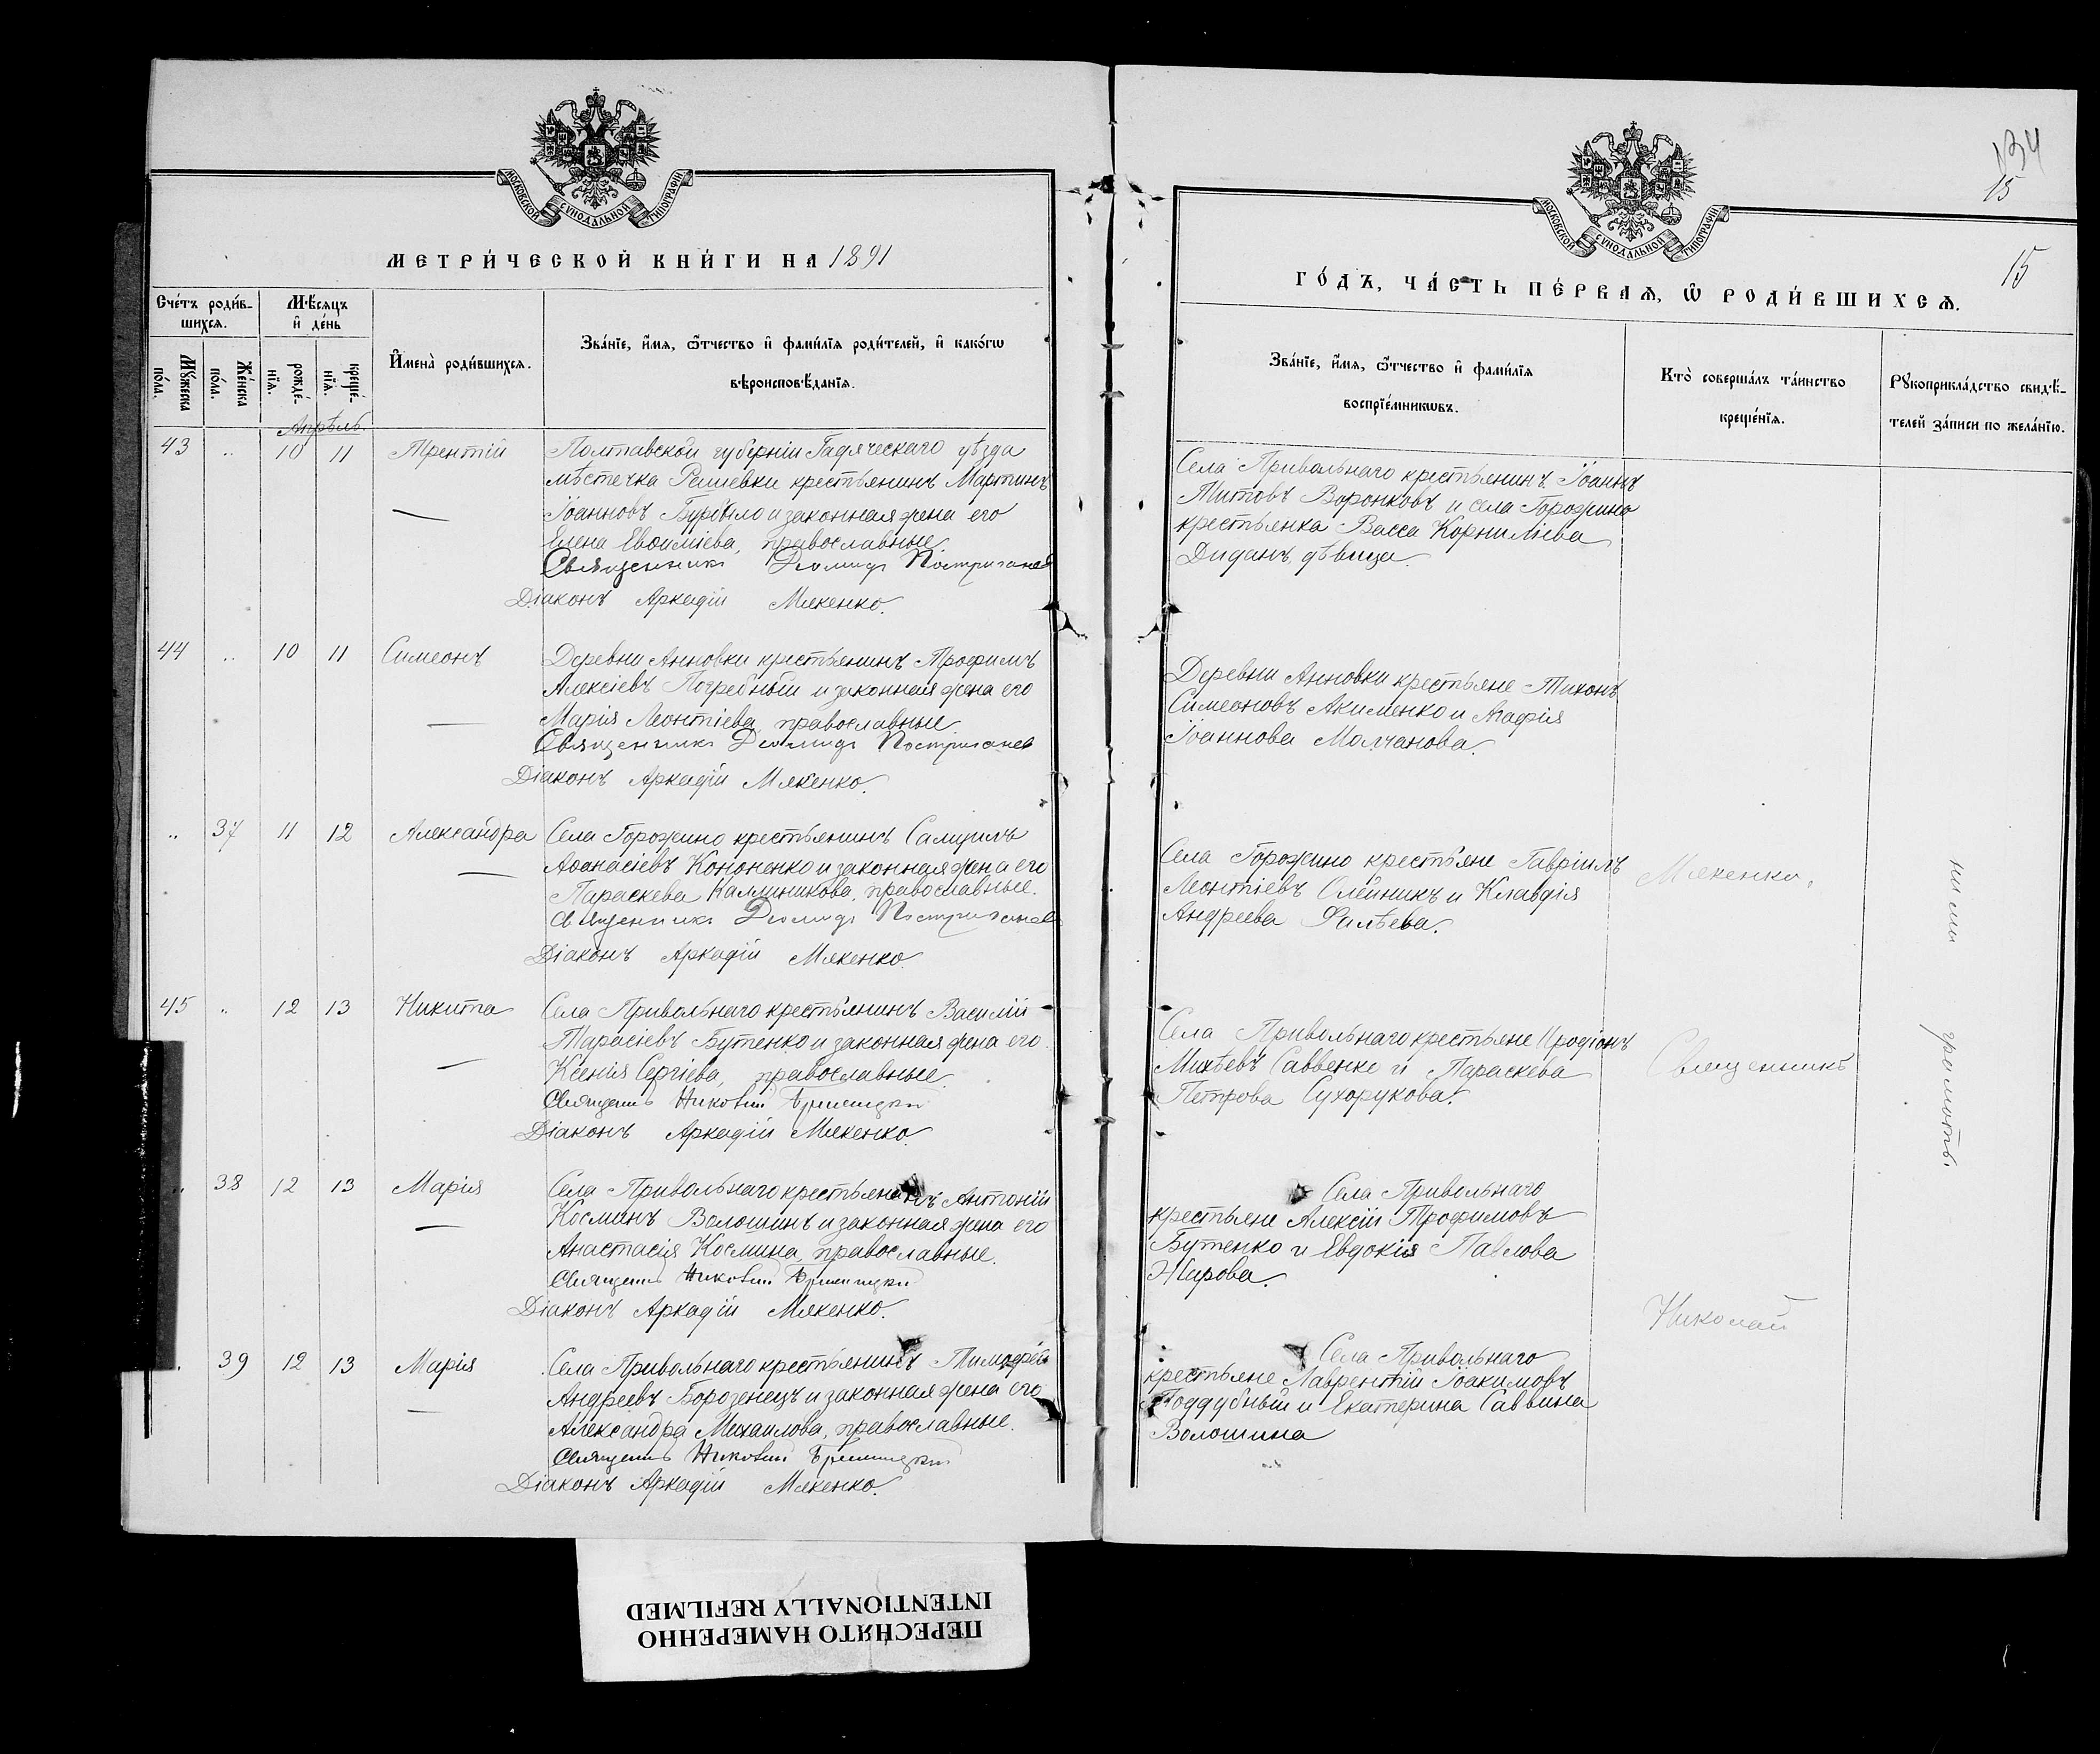 МОСКОВСКОЙ СУНОДАЛЬНОЙ ТИПОГРАФІИ
МЕТРИ́ЧЕСКОЙ КНИ́ГИ НА 1891
Сче́тъ роди́в-
шихсѧ.
Мѣ́сѧцъ
и҆ де́нь
И҆мена̀ роди́вшихсѧ.
Зва́нїе, и҆́мѧ, ѻ҆́тчество и҆ фами́лїѧ роди́телей, и҆ како́гѡ
вѣроисповѣ́данїѧ.
Мꙋ́жеска
по́ла.
Же́нска
по́ла.
рожде́-
нїѧ.
креще́-
нїѧ.
Апрѣль.
43 " 10 11 Трентій Полтавской губерніи Гадяческаго уѣзда
мѣстечка Рашевки крестьянинъ Мартинъ
Іоанновъ Бурбыло и законная жена его
Елена Евѳиміева, православные.
Священникъ Діомидъ
Діаконъ Аркадій Мякенко.
44 " 10 11 Симеонъ Деревни Анновки крестьянинъ Трофимъ
Алексіевъ Погребный и законная жена его
Марія Леонтіева, православные.
Священникъ Діомидъ
Діаконъ Аркадій Мякенко.
" 37 11 12 Александра Села Горожино крестьянинъ Самуилъ
Аѳанасіевъ Кононенко и законная жена его
Параскева Каллиникова, православные.
Священникъ Діомидъ
Діаконъ Аркадій Мякенко.
45 " 12 13 Никита Села Привольнаго крестьянинъ Василій
Тарасіевъ Бутенко и законная жена его
Ксенія Сергіева, православные.
Священъ
Діаконъ Аркадій Мякенко.
" 38 12 13 Марія Села Привольнаго крестьянинъ Антоній
Косминъ Волошинъ и законная жена его
Анастасія Космина, православные.
Священъ
Діаконъ Аркадій Мякенко.
" 39 12 13 Марія Села Привольнаго крестьянинъ Тимоѳей
Андреевъ Борозенецъ и законная жена его
Александра Михаилова, православные.
Священъ
Діаконъ Аркадій Мякенко.
134
15
МОСКОВСКОЙ СУНОДАЛЬНОЙ ТИПОГРАФІИ
15
ГО́ДЪ, ЧА́СТЬ ПЕ́РВАѦ, Ѡ҆ РОДИ́ВШИХСѦ.
Зва́нїе, и҆́мѧ, ѻ҆́тчество и҆ фами́лїѧ
воспрїе́мникѡвъ.
Кто̀ соверша́лъ та́инство
креще́нїѧ.
Рꙋкоприкла́дство свидѣ́-
телей за́писи по жела́нїю.
Села Привольнаго крестьянинъ Іоаннъ
Титовъ Воронковъ и села Горожино
крестьянка Васса Корниліева
Диданъ, дѣвица.
Деревни Анновки крестьяне Тихонъ
Симеоновъ Акименко и Агафія
Іоаннова Молчанова.
Села Горожино крестьяне Гавріилъ
Леонтіевъ Олейникъ и Клавдія
Андреева Фалѣева.
Мякенко,
Села Привольнаго крестьяне Иродіонъ
Михѣевъ Савенко и Параскева
Петрова Сухорукова.
Священникъ
Села Привольнаго
крестьяне Алексій Трофимовъ
Бутенко и Евдокія Павлова
Жирова.
Николай
Села Привольнаго
крестьяне Лаврентій Іоакимовъ
Поддубный и Екатерина Саввина
Волошина
ПЕРЕСНЯТО НАМЕРЕННО
INTENTIONALLY REFILMED